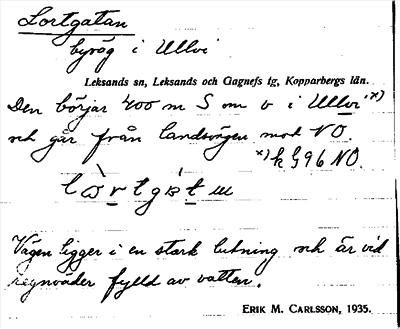 Lortgatan
byväg i Ullvi
Leksands sn, Leksands och Gagnefs tg, Kopparbergs län.
Den börjar 400 m S om v i Ullvi x)
och går från landsvägen mot NO.
x) k § 96 NO.
Vägen ligger i en stark lutning och är vid
regnväder fylld av vatten.
ERIK M. CARLSSON, 1935.